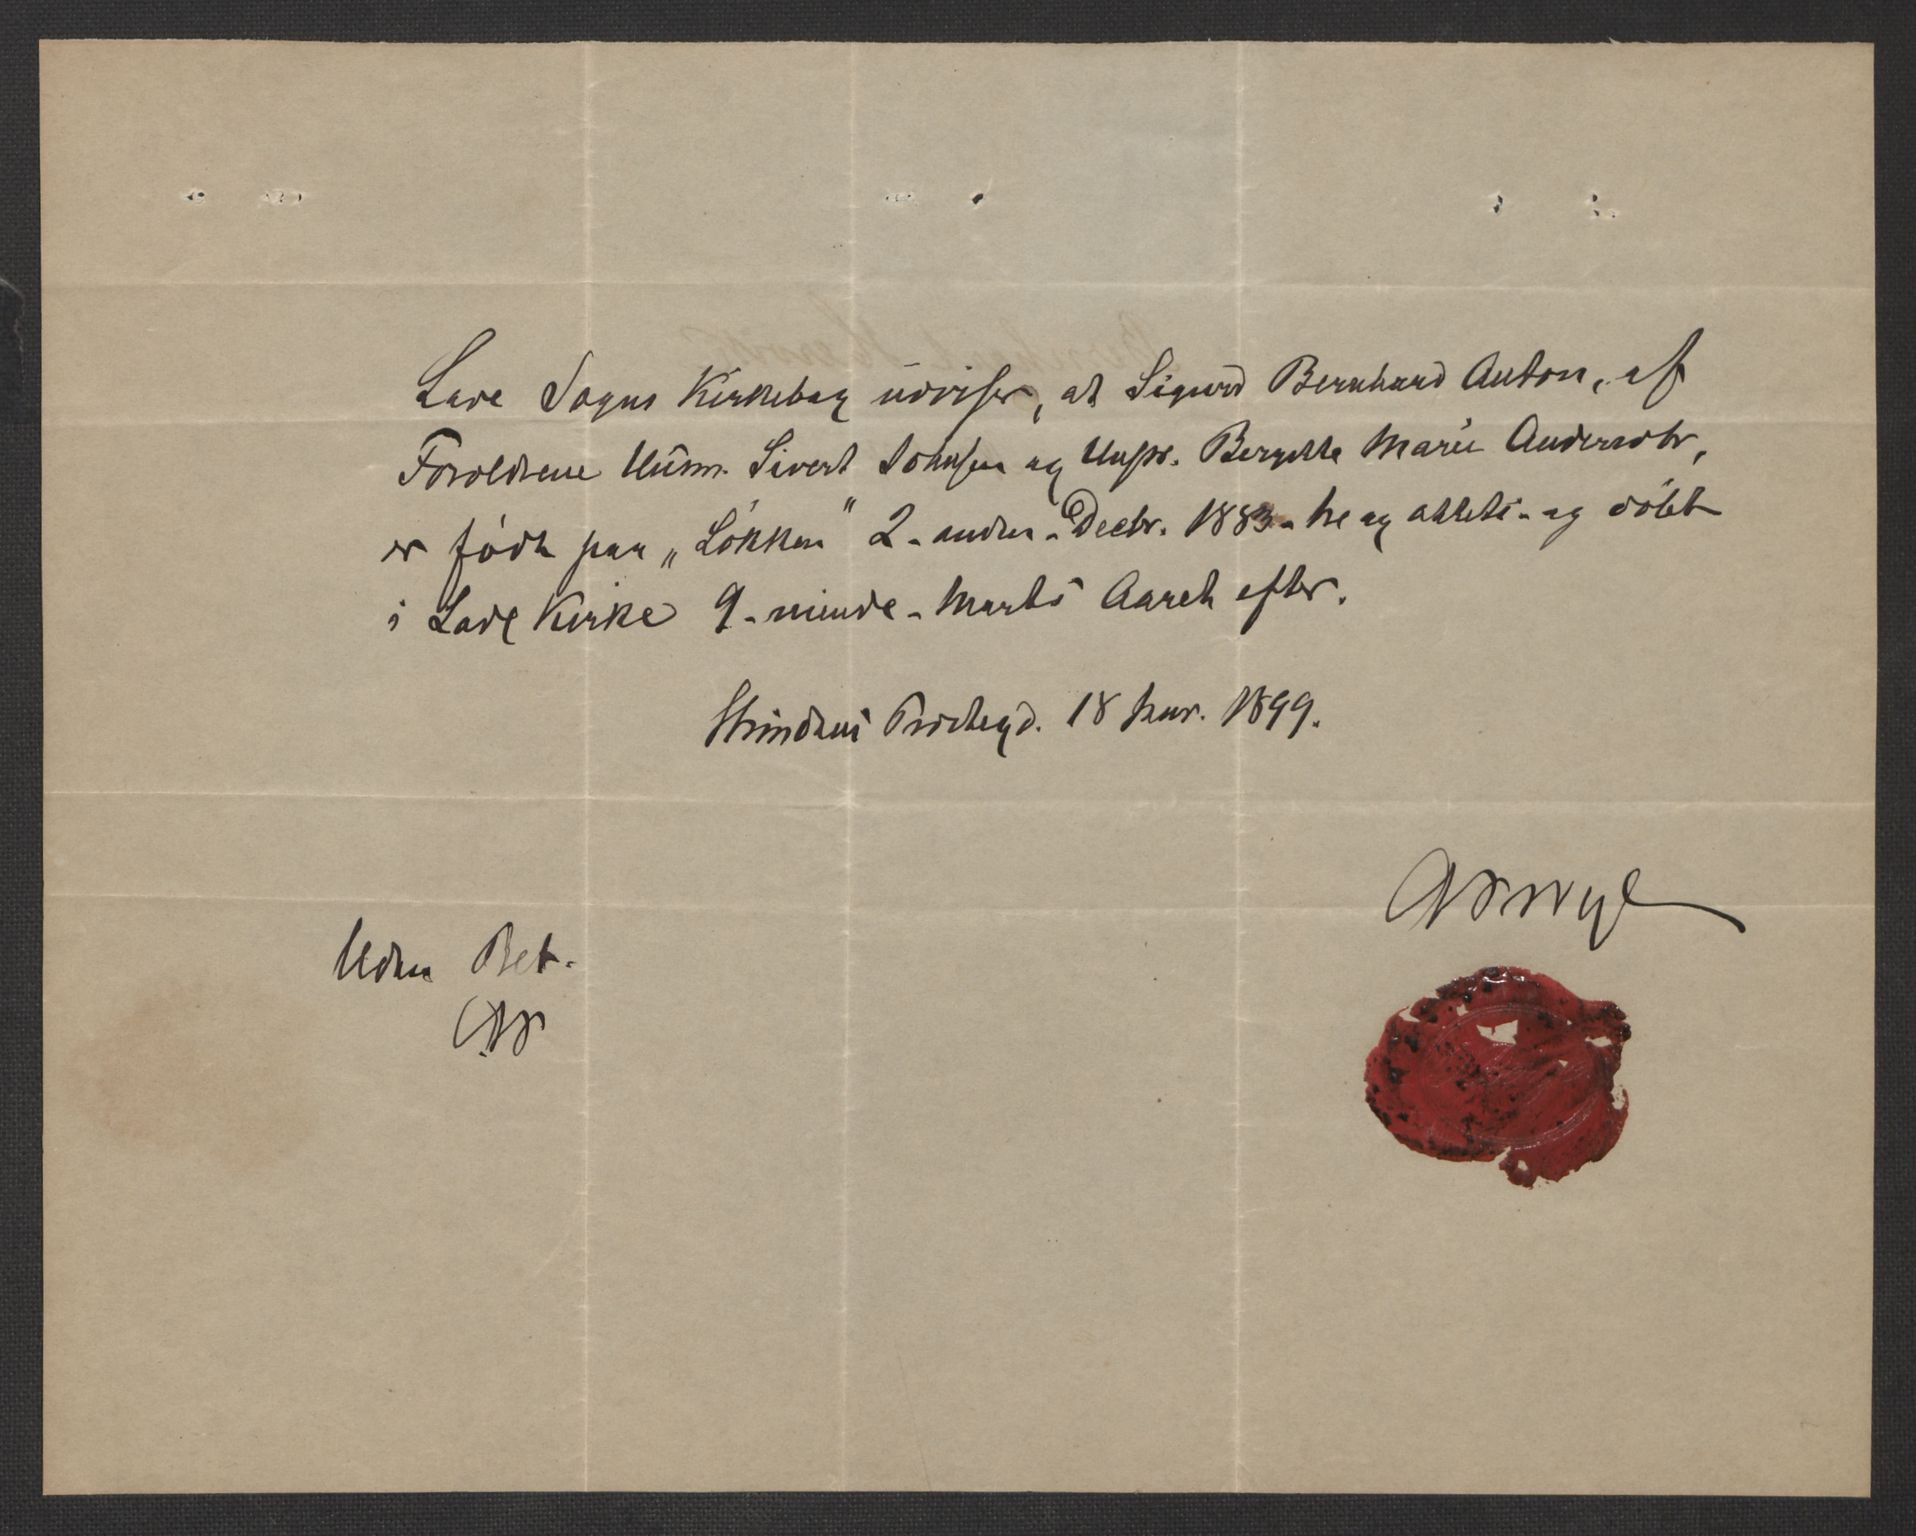 Lade Sogns Kirkebog udviser, at Sigurd Bernhard Anton, af
Forældrene Husm. Sivert Johnsen og Hustr. Bergitte Marie Andersdtr,
er født paa „Løkken" 2 - anden - Decbr. 1883 - tre og otteti - og døbt
i Lade Kirke 9 - niende - Marts Aaret efter.
Strindens Prestegd. 18 1899.
Uden Bet.